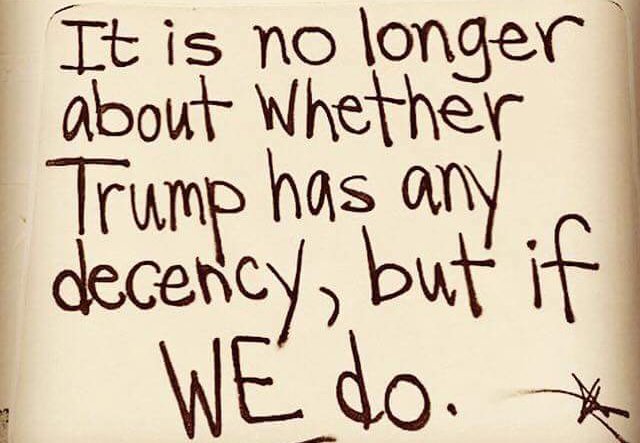 It is no longer
about whether
Trump has any
decency, but if
WE do.